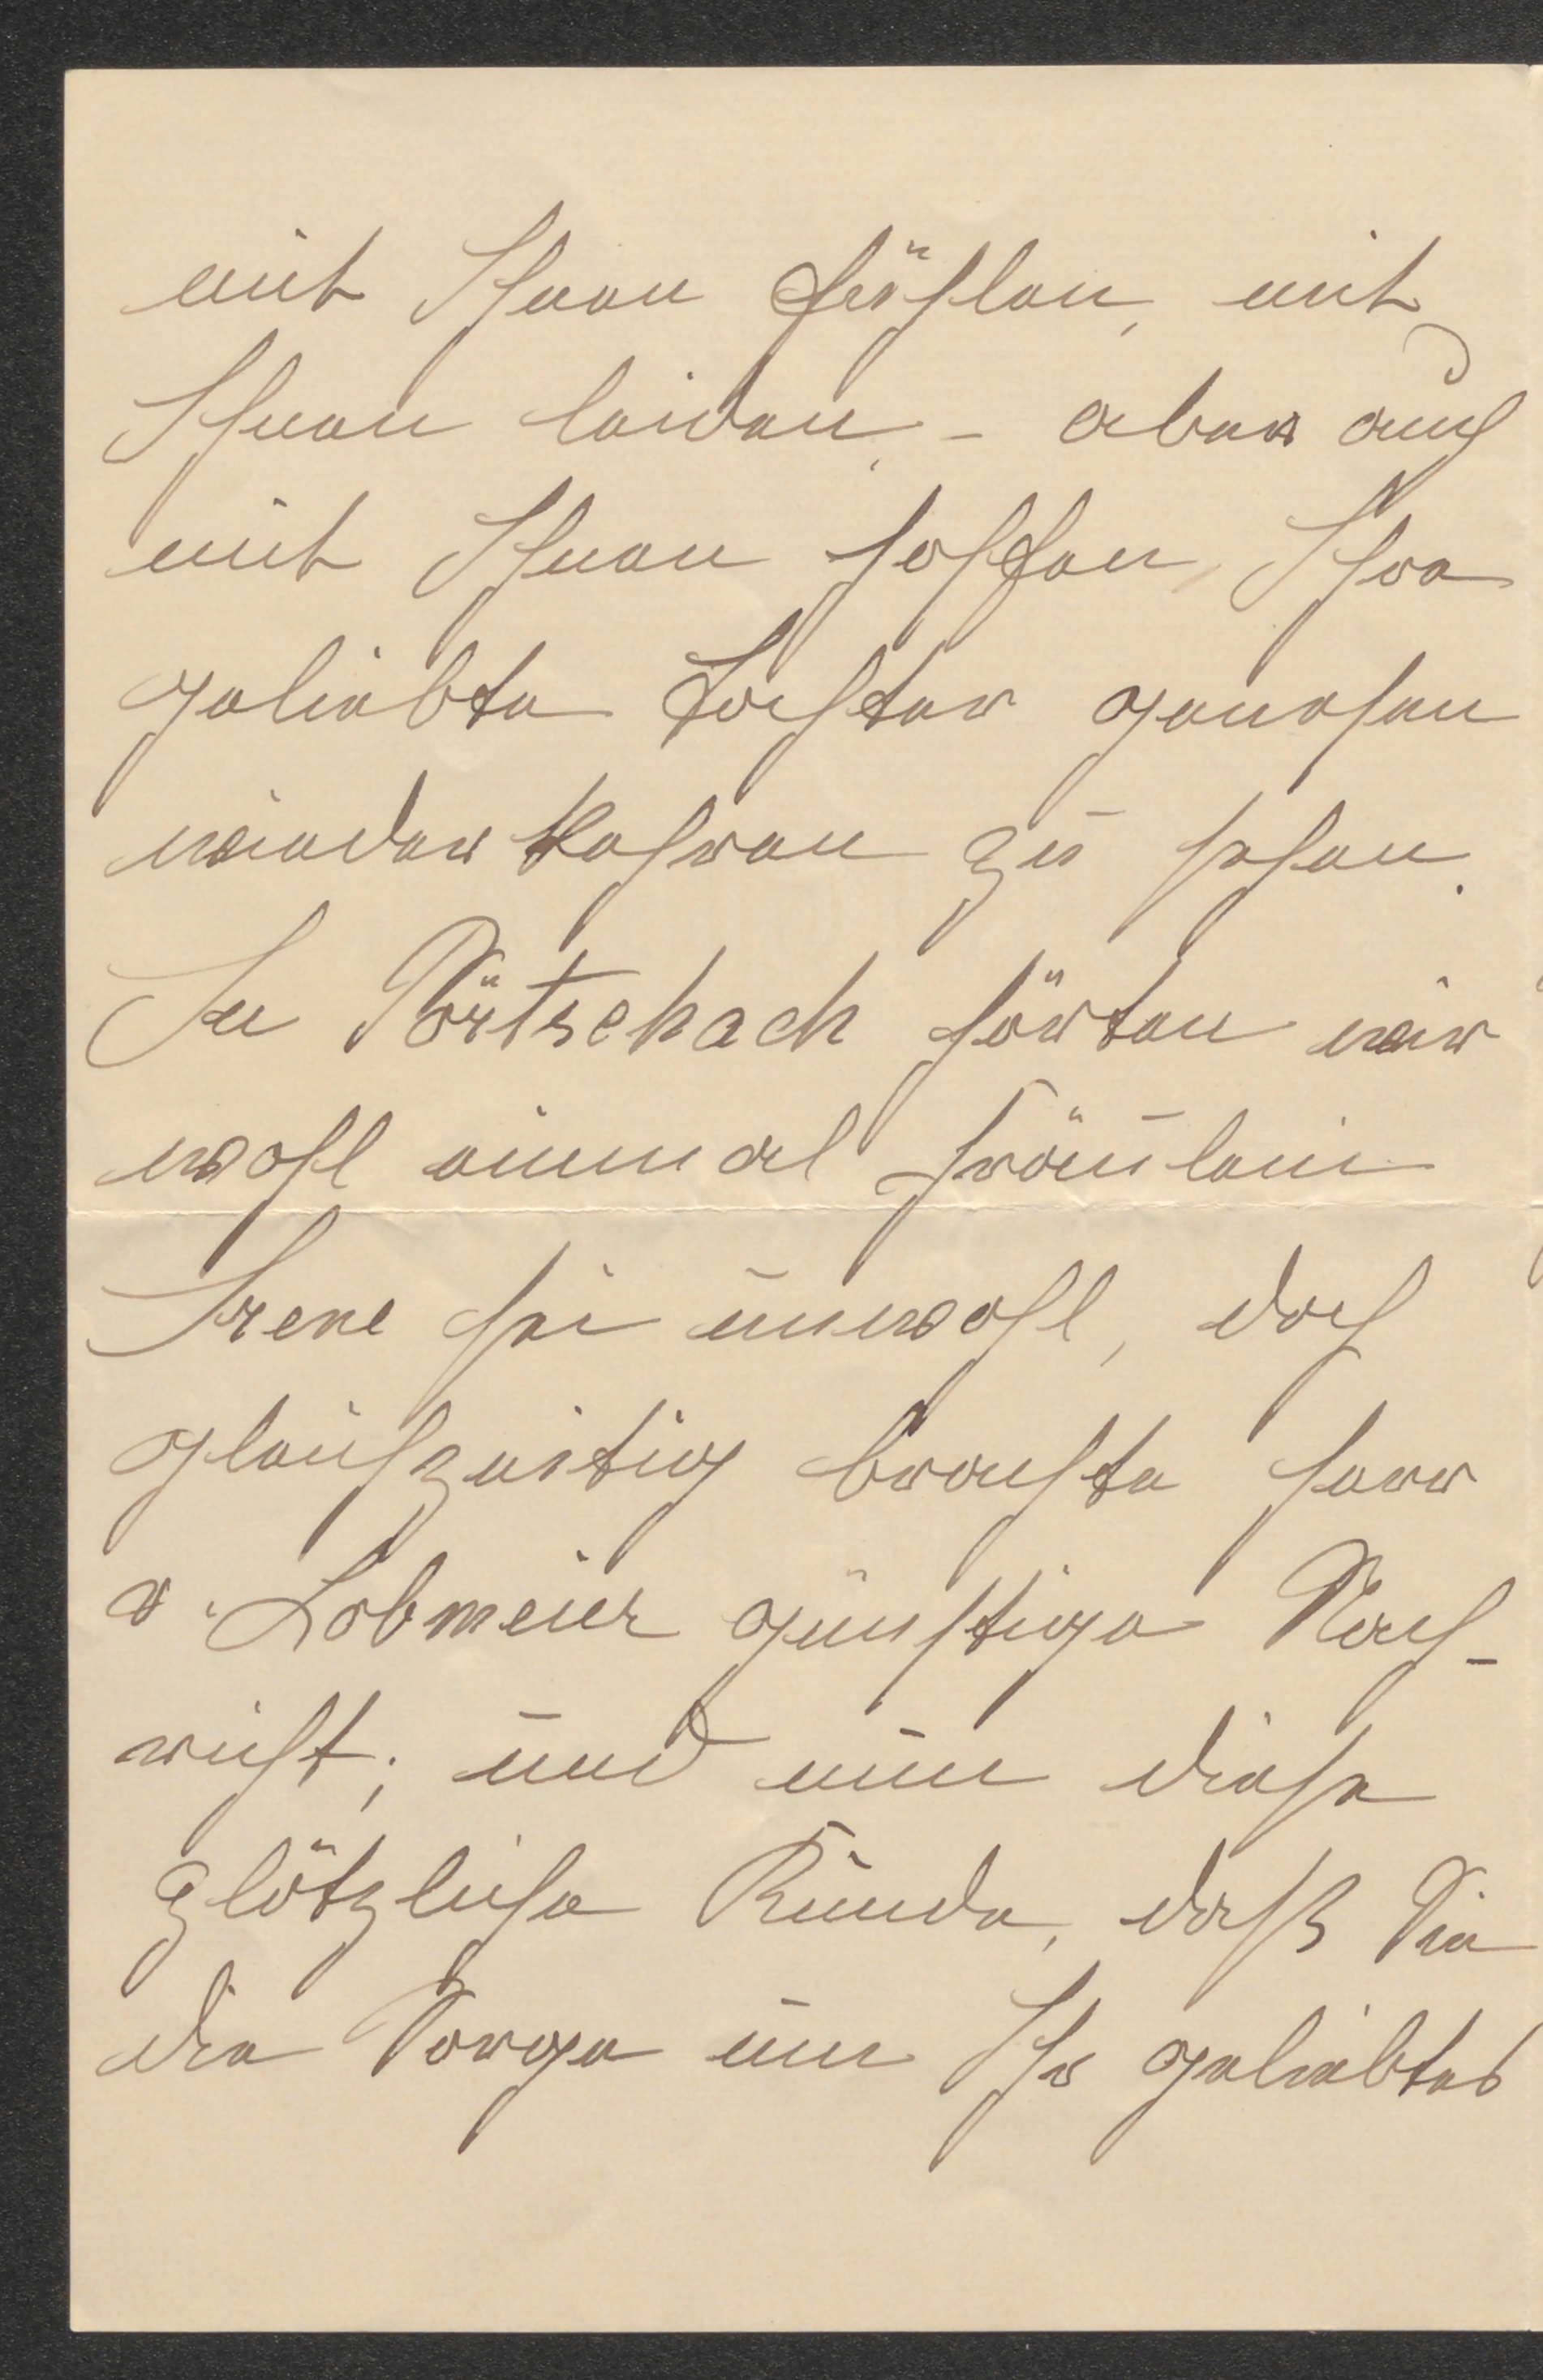 mit Ihnen fühlen, mit
Ihnen leiden, – aber auch
mit Ihnen hoffen, Ihre
geliebte Tochter genesen
wiederkehren zu sehen.
In Pörtschach hörten wir
wohl einmal Fräulein
Irene sei unwohl, doch
gleichzeitig brachte Herr
v. Lobmeier günstige Nach-
richt; und nun diese
plötzliche Kunde, daß Sie
die Sorge um Ihr geliebtes